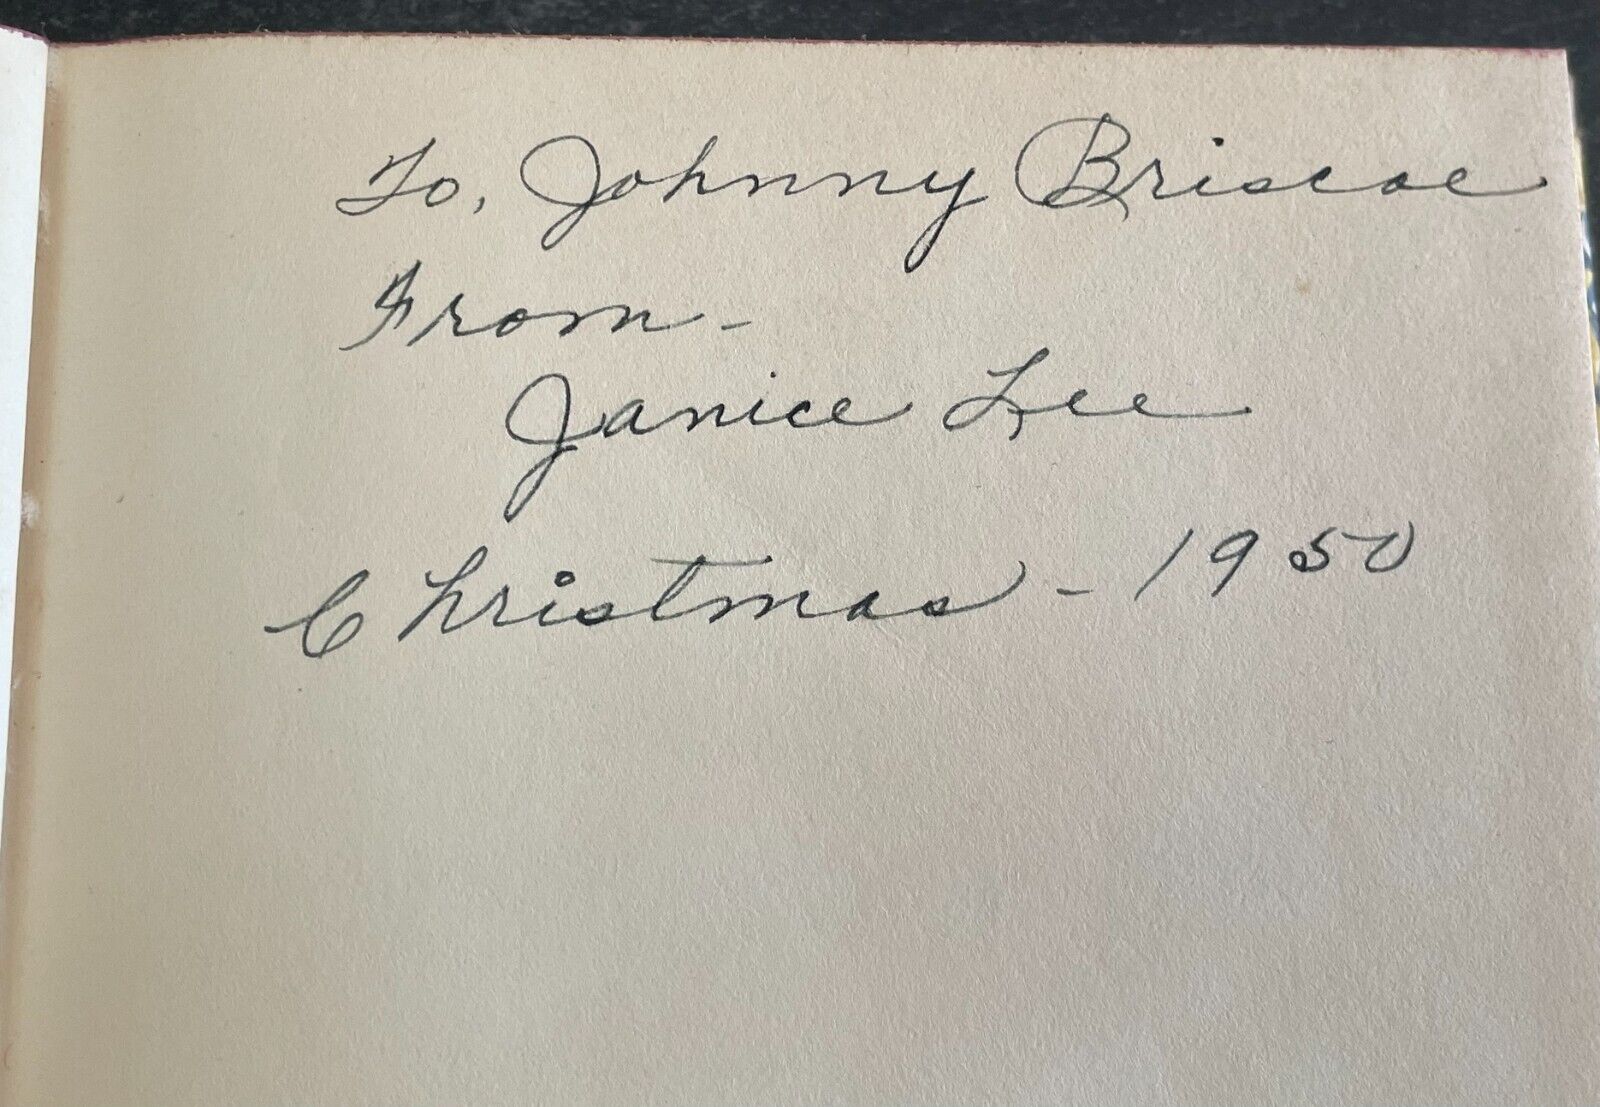 To, Johnny Briscoe
From -
Janice Lee
Christmas - 1950